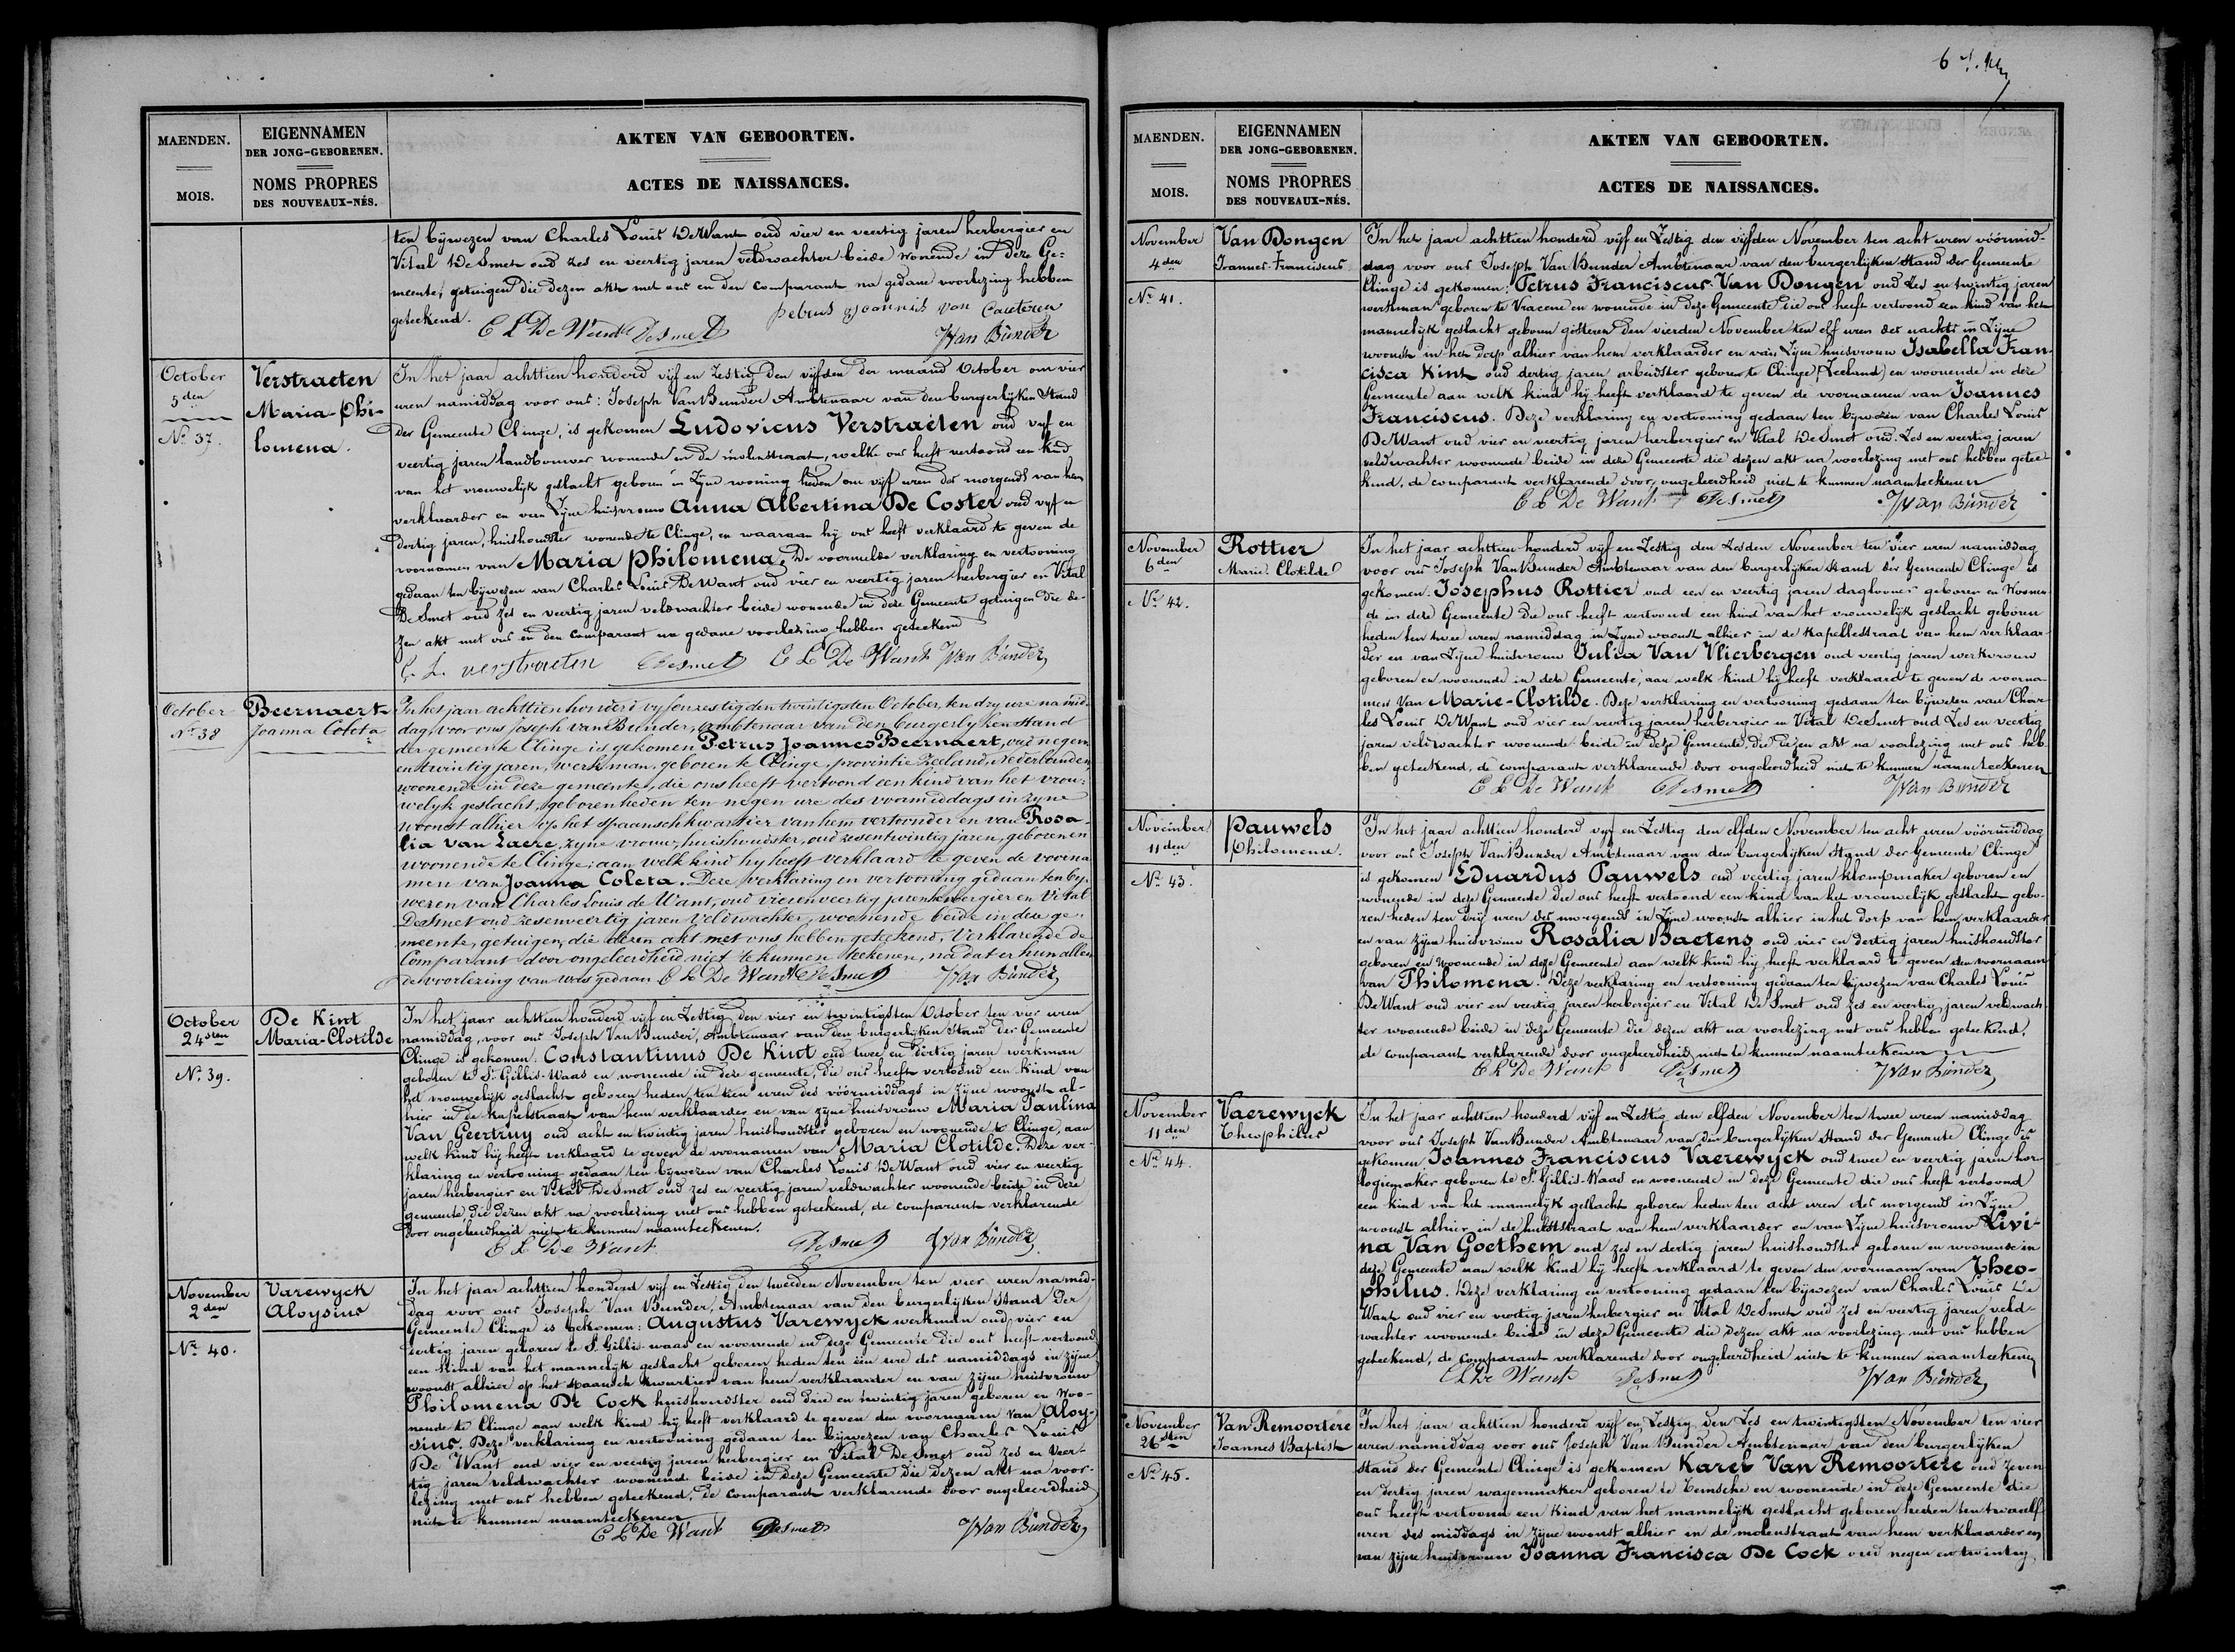 6
MAENDEN.
MOIS.
EIGENNAMEN
DER JONG-GEBORENEN.
NOMS PROPRES
DES NOUVEAUX-NÉS.
AKTEN VAN GEBOORTEN.
ACTES DE NAISSANCES.
ten bijwezen van Charles Louis DeWant oud vier en veertig jaren herbergier en
Vital De Smet oud zes en veertig jaren veldwachter beide wonende in deze Ge-
meente, getuigen die dezen akt met ons en den comparant na gedane voorlezing hebben
geteekend. petrus joannis van Cauteren
C L De Want DeSmet JVan Bunder
October
5den
No 37.
Verstraeten
Maria-Phi-
lomena.
In het jaar achttien honderd vijf en Zestig den vijfden der maand October om vier
uren namiddag voor ons: Joseph VanBunder Ambtenaar van den burgerlijken Stand
der Gemeente Clinge, is gekomen Ludovicus Verstraeten oud vijf en
veertig jaren landbouwer wonende in de molenstraat, welke ons heeft vertoond een kind
van het vrouwelijk geslacht geboren in Zijne woning heden om vijf uren des morgends van hem
verklaarder en van Zijne huisvrouw Anna Albertina De Coster oud vijf en
dertig jaren, huishoudster wonende te Clinge, en waaraan hij ons heeft verklaard te geven de
voornamen van Maria Philomena. De voormelde verklaring en vertooning
gedaan ten bijwezen van Charles Louis DeWant oud vier en veertig jaren herbergier en Vital
DeSmet oud zes en veertig jaren veldwachter beide wonende in deze Gemeente getuigen die de-
zen akt met ons en den comparant na gedane voorlezing hebben geteekend
verstraeten DeSmet C L De Want JVan Bunder
October
No 38
Beernaert
Joanna Coleta
In het jaar achttien honderd vyfenzestig den twintigsten October, ten dry ure namid-
dag, voor ons Joseph van Bunder, ambtenaar van den burgerlyken stand
der gemeente Clinge is gekomen Petrus Joannes Beernaert, oud negen
en twintig jaren, werkman, geboren te Clinge, provintie Zeeland, Nederlanden
woonende in deze gemeente, die ons heeft vertoond een kind van het vrou-
welyk geslacht, geboren heden ten negen ure des voormiddags in zyne
woonst alhier op het spaansch kwartier van hem vertoonder en van Rosa-
lia van Laere, zyne vrouw, huishoudster, oud zesentwintig jaren, geboren en
woonende te Clinge; aan welk kind hy heeft verklaard te geven de voorna
men van Joanna Coleta. Deze verklaring en vertooning gedaan ten by-
wezen van Charles Louis de Want, oud vierenveertig jaren herbergier en Vital
DeSmet oud zesenveertig jaren veldwachter, woonende beide in deze ge-
meente, getuigen, die dezen akt met ons hebben geteekend, Verklarende de
Comparant door ongeleerdheid niet te kunnen teekenen, na dat er hun allen
de voorlezing van was gedaan C L De Want DeSmet JVan Bunder
October
24sten
No 39.
De Kint
Maria-Clotilde
In het jaar achttien honderd vijf en Zestig den vier en twintigsten October ten vier uren
namiddag, voor ons Joseph VanBunder, Ambtenaar van den burgerlijken Stand der Gemeente
Clinge is gekomen: Constantinus De Kint oud twee en dertig jaren werkman
geboren te St Gillis-Waas en wonende in deze gemeente, die ons heeft vertoond een kind van
het vrouwelijk geslacht geboren heden ten tien uren des vóórmiddags in zijne woonst al-
hier in de kapelstraat van hem verklaarder en van zijne huisvrouw Maria Paulina
Van Geertruy oud acht en twintig jaren huishoudster geboren en woonende te Clinge, aan
welk kind hij heeft verklaard te geven de voornamen van Maria Clotilde. Deze ver-
klaring en vertooning gedaan ten bijwezen van Charles Louis DeWant oud vier en veertig
jaren herbergier en Vital DeSmet oud zes en veertig jaren veldwachter woonende beide in deze
gemeente die dezen akt na voorlezing met ons hebben geteekend, de comparant verklarende
door ongeleerdheid niet te kunnen naamteekenen.
C L De Want DeSmet JVan Bunder
November
2den
No 40.
Varewyck
Aloysius
In het jaar achttien honderd vijf en Zestig den tweeden November ten vier uren namid-
dag voor ons Joseph Van Bunder, Ambtenaar van den burgerlijken Stand der
Gemeente Clinge is gekomen: Augustus Varewyck werkman oud vier en
dertig jaren geboren te St Gillis-waas en woonende in deze Gemeente die ons heeft vertoond
een kind van het mannelijk geslacht geboren heden ten één ure des namiddags in zijne
woonst alhier op het spaansch kwartier van hem verklaarder en van zijne huisvrouw
Philomena De Cock huishoudster oud drie en twintig jaren geboren en Woo-
nende te Clinge aan welk kind hij heeft verklaard te geven den voornamen van Aloy-
sius. Deze verklaring en vertooning gedaan ten bijwezen van Charles Louis
De Want oud vier en veertig jaren herbergier en Vital DeSmet oud zes en veer-
tig jaren veldwachter woonende beide in deze Gemeente die dezen akt na voor-
lezing met ons hebben geteekend, de comparant verklarende door ongeleerdheid
niet te kunnen naamteekenen
C L De Want DeSmet JVan Bunder
MAENDEN.
MOIS.
EIGENNAMEN
DER JONG-GEBORENEN.
NOMS PROPRES
DES NOUVEAUX-NÉS.
AKTEN VAN GEBOORTEN.
ACTES DE NAISSANCES.
November
4den
No 41.
Van Dongen
Joannes-Franciscus
In het jaar achttien honderd vijf en Zestig den vijfden November ten acht uren vóórmid-
dag voor ons Joseph VanBunder Ambtenaar van den burgerlijken Stand der Gemeente
Clinge is gekomen: Petrus Franciscus Van Dongen oud Zes en twintig jaren
werkman geboren te Vracene en wonende in deze Gemeente die ons heeft vertoond een kind van het
mannelijk geslacht geboren gisteren den vierden November ten elf uren des nachts in Zijne
woonst in het dorp alhier van hem verklaarder en van Zijne huisvrouw Isabella Fran-
cisca Kint oud dertig jaren arbeidster geboren te Clinge (Zeeland) en woonende in deze
Gemeente aan welk kind hij heeft verklaard te geven de voornamen van Joannes
Franciscus. Deze verklaring en vertooning gedaan ten bijwezen van Charles Louis
DeWant oud vier en veertig jaren herbergier en Vital DeSmet oud Zes en veertig jaren
veldwachter woonende beide in deze Gemeente die dezen akt na voorlezing met ons hebben getee-
kend, de comparant verklarende door ongeleerdheid niet te kunnen naamteekenen
C L De Want DeSmet JVan Bunder
November
6den
No 42.
Rottier
Marie-Clotilde
In het jaar achttien honderd vijf en Zestig den Zesden November ten vier uren namiddag
voor ons Joseph VanBunder Ambtenaar van den burgerlijken Stand der Gemeente Clinge is
gekomen: Josephus Rottier oud een en veertig jaren daglooner geboren en Woonen-
de in deze Gemeente die ons heeft vertoond een kind van het vrouwelijk geslacht geboren
heden ten twee uren namiddag in Zijne woonst alhier in de Kapellestraat van hem verklaar-
der en van Zijne huisvrouw Julia Van Vlierbergen oud veertig jaren werkvrouw
geboren en woonende in deze Gemeente, aan welk kind hij heeft verklaard te geven de voorna-
men Van Marie-Clotilde. Deze verklaring en vertooning gedaan ten bijwezen van Char-
les Louis DeWant oud vier en veertig jaren herbergier en Vital DeSmet oud Zes en veertig
jaren veldwachter woonende beide in deze Gemeente, die dezen akt na voorlezing met ons heb-
ben geteekend, de comparant verklarende door ongeleerdheid niet te kunnen naamteekenen
C L De Want DeSmet JVan Bunder
November
11den
No 43.
Pauwels
Philomena.
In het jaar achttien honderd vijf en Zestig den elfden November ten acht uren vóórmiddag
voor ons Joseph VanBunder Ambtenaar van den burgerlijken Stand der Gemeente Clinge
is gekomen Eduardus Pauwels oud veertig jaren klompmaker geboren en
wonende in deze Gemeente die ons heeft vertoond een kind van het vrouwelijk geslacht gebo-
ren heden ten drij uren des morgends in Zijne woonst alhier in het dorp van hem verklaarder
en van zijne huisvrouw Rosalia Baetens oud vier en dertig jaren huishoudster
geboren en Woonende in deze Gemeente aan welk kind hij heeft verklaard te geven den voornaam
van Philomena. Deze verklaring en vertooning gedaan ten bijwezen van Charles Louis
DeWant oud vier en veertig jaren herbergier en Vital DeSmet oud zes en veertig jaren veldwach-
ter woonende beide in deze Gemeente die dezen akt na voorlezing met ons hebben geteekend.
de comparant verklarende door ongeleerdheid niet te kunnen naamteekenen
C L De Want DeSmet JVan Bunder
November
11den
No 44.
Vaerewyck
Theophilus
In het jaar achttien honderd vijf en Zestig den elfden November ten twee uren namiddag
voor ons Joseph VanBunder Ambtenaar van den burgerlijken Stand der Gemeente Clinge is
gekomen Joannes Franciscus Vaerewyck oud twee en veertig jaren hor-
logiemaker geboren te St Gillis-Waas en woonende in deze Gemeente die ons heeft vertoond
een kind van het mannelijk geslacht geboren heden ten acht uren des morgends in Zijne
woonst alhier in de hulststraat van hem verklaarder en van Zijne huisvrouw Livi-
na Van Goethem oud zes en dertig jaren huishoudster geboren en woonende in
deze Gemeente aan welk kind hij heeft verklaard te geven den voornaam van Theo-
philus. Deze verklaring en vertooning gedaan ten bijwezen van Charles Louis De
Want oud vier en veertig jaren herbergier en Vital DeSmet oud zes en veertig jaren veld-
wachter woonende beide in deze Gemeente die dezen akt na voorlezing met ons hebben
geteekend, de comparant verklarende door ongeleerdheid niet te kunnen naamteekenen
C L De Want DeSmet JVan Bunder
November
26sten
No 45.
Van Remoortere
Joannes Baptist
In het jaar achttien honderd vijf en Zestig den Zes en twintigsten November ten vier
uren namiddag voor ons Joseph Van Bunder Ambtenaar van den burgerlijken
stand der Gemeente Clinge is gekomen Karel Van Remoortere oud zeven
en dertig jaren wagenmaker geboren te Temsche en woonende in deze Gemeente die
ons heeft vertoond een kind van het mannelijk geslacht geboren heden ten twaalf
uren des middags in Zijne woonst alhier in de molenstraat van hem verklaarder en
van zijne huisvrouw Joanna Francisca De Cock oud negen en twintig